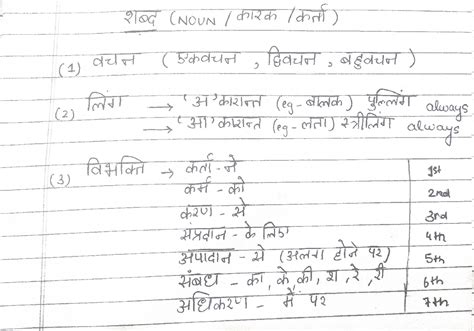 शब्द (NOUN / कारक / कर्ता)
(1) वचन (एकवचन, द्विवचन, बहुवचन)
(2) लिंग → 'अ' कारान्त (eg - बालक) पुल्लिंग always
→ 'आ' कारान्त (eg - लता) स्त्रीलिंग always
(3) विभक्ति → कर्ता - ने 1st
कर्म - को 2nd
करण - से 3rd
संप्रदान - के लिए 4th
अपादान - से (अलग होने पर) 5th
संबंध - का, के, की, रा, रे, री 6th
अधिकरण - में पर 7th